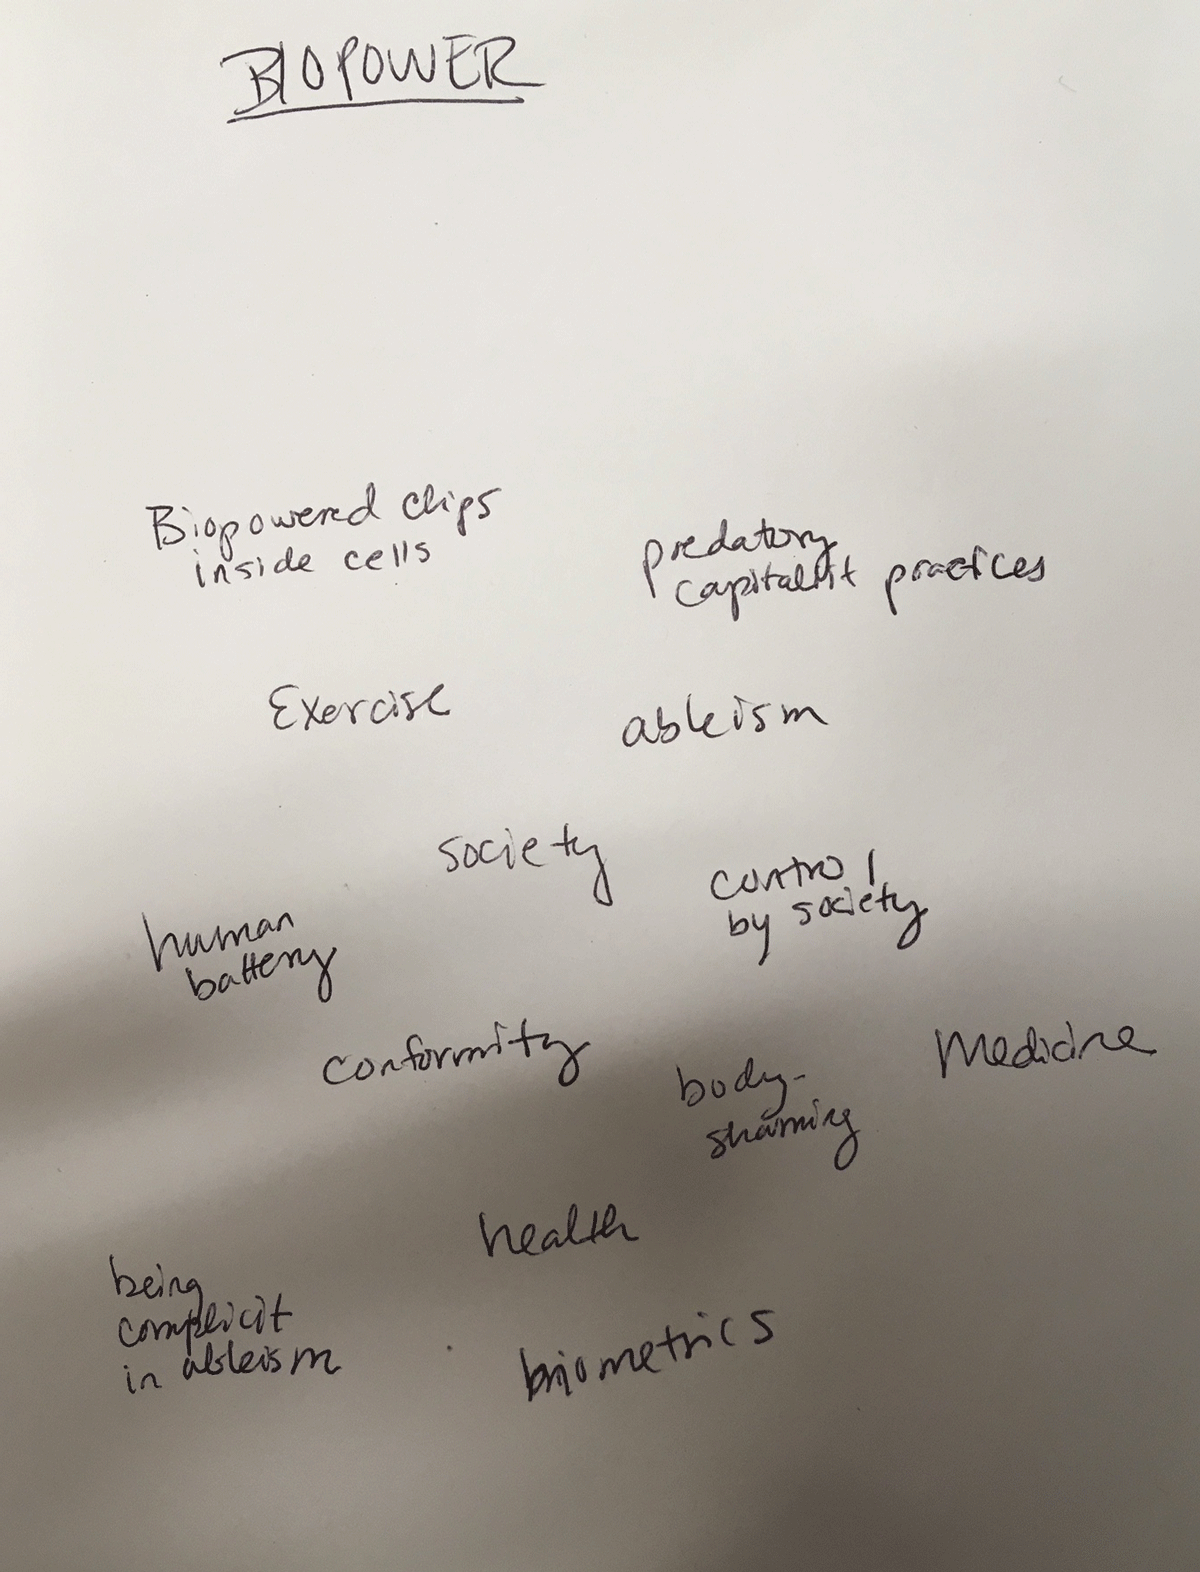 BIOPOWER
Biopowered chips
inside cells
predatory
capitalist practices
Exercise
ableism
society
control
by society
human
battery
conformity
body-
shaming
Medicine
health
being
complicit
in ableism
biometrics